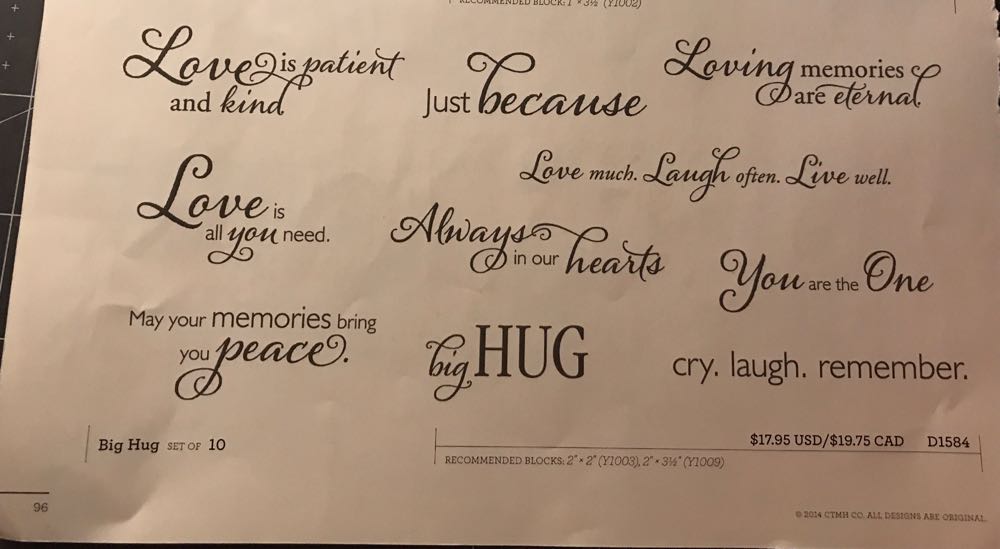 RECOMMENDED BLOCK: 1" × 3½" (Y1002)
Love is patient
and kind
Just because
Loving memories
are eternal.
Love much. Laugh often. Live well.
Love is
all you need.
Always
in our hearts
You are the One
May your memories bring
you peace.
big HUG
cry. laugh. remember.
Big Hug SET OF 10
$17.95 USD/$19.75 CAD D1584
RECOMMENDED BLOCKS: 2" × 2" (Y1003), 2" × 3½" (Y1009)
96
© 2014 CTMH CO. ALL DESIGNS ARE ORIGINAL.